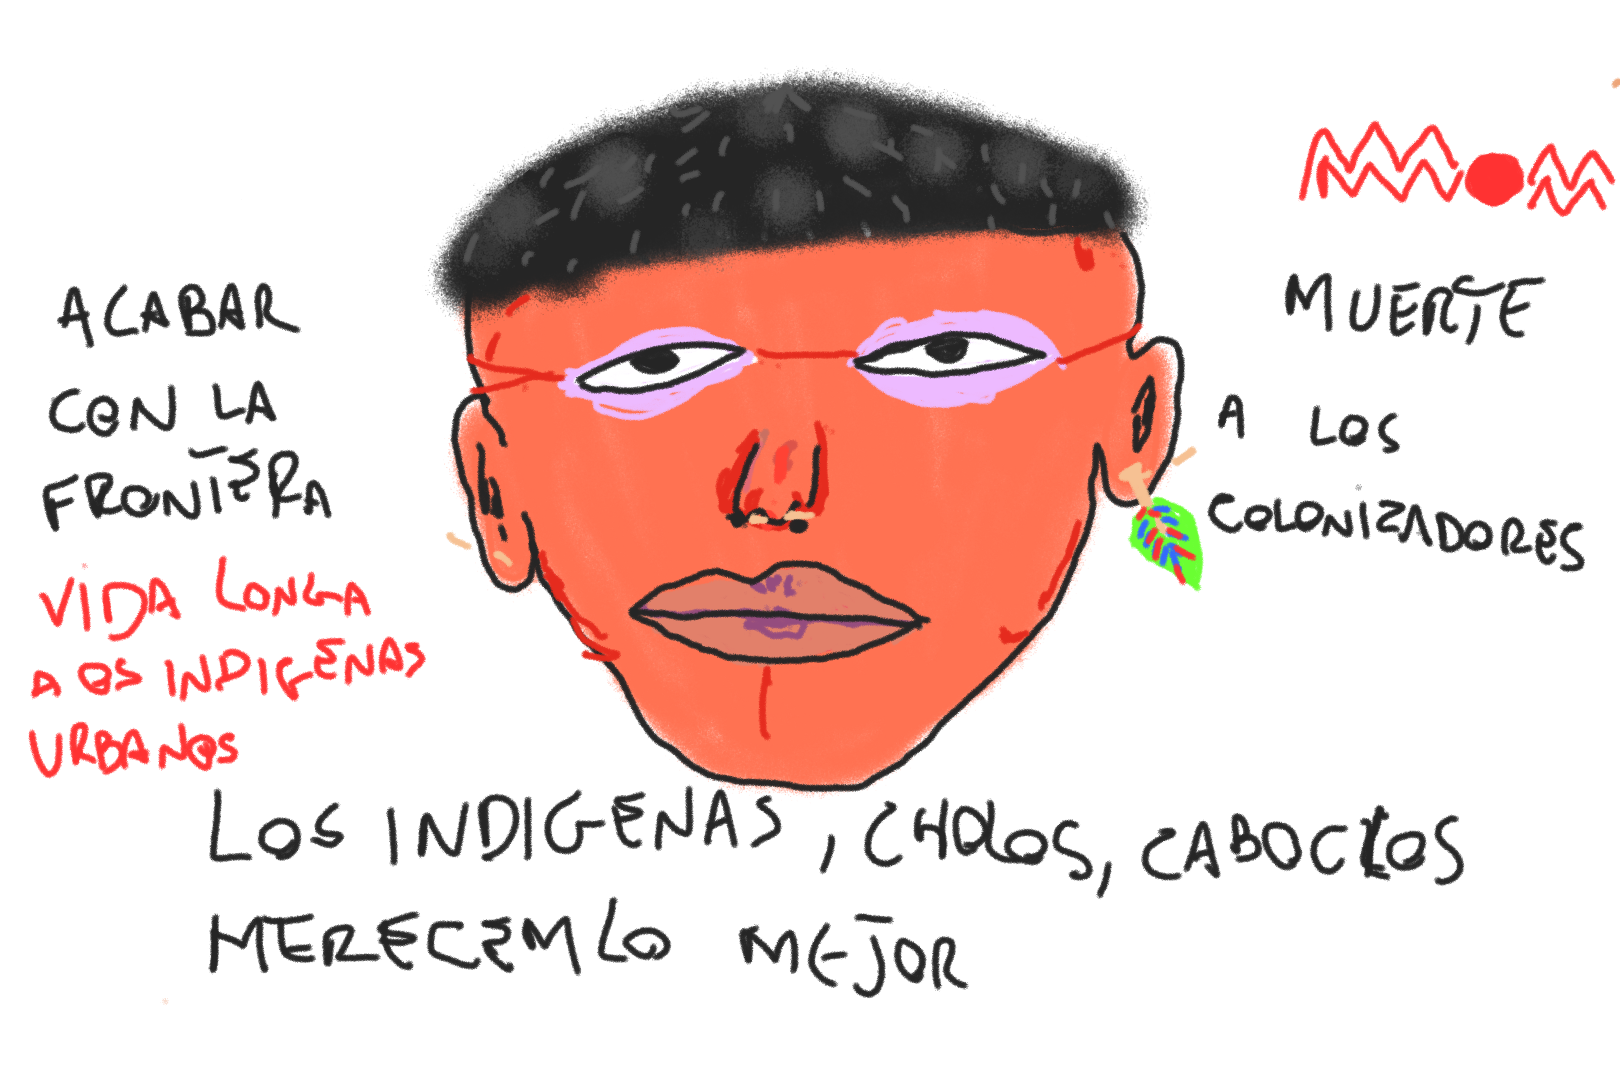 ACABAR
CON LA
FRONTERA
VIDA LONGA
A OS INDIGENAS
URBANOS
MUERTE
A LOS
COLONIZADORES
LOS INDIGENAS, CHOLOS, CABOCLOS
MERECEM LO MEJOR